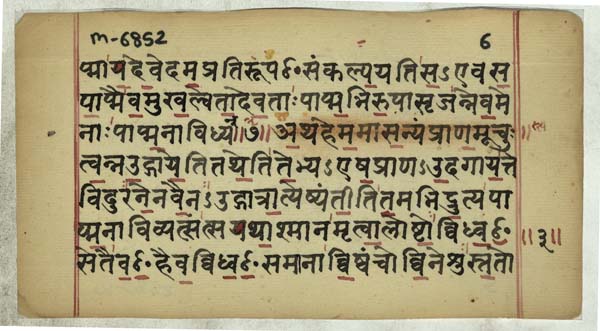 m-6852 6
प्मायदेवेदमप्रतिरूपꣳसंकल्पयतिसऽएवस
पाप्मैवमुखल्वेतादेवताःपाप्मभिरुपासृजन्नेवमे
नाःपाप्मनाविध्यन्॥७॥अथहेममासन्यंप्राणमूचुः
त्वन्नउद्गायेतितथेतितेभ्यऽएषप्राणऽउदगायत्ते
विदुरनेनवैनऽउद्गात्रात्येष्यंतीतितमभिद्रुत्यपा
प्मनाविव्यत्संत्सयथाश्मानमृत्वालोष्टोविध्वꣳ
सेतैवꣳहैवविध्वꣳसमानाविष्वंचोविनेशुस्ततो
॥३॥